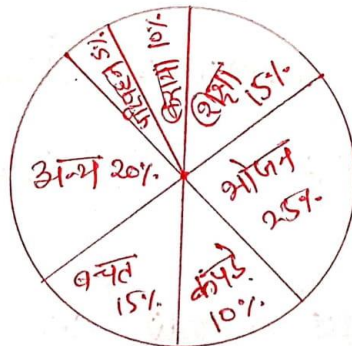 परिवहन 5%
किराया 10%
शिक्षा
15%
भोजन
25%
कपड़े
10%
बचत
15%
अन्य 20%